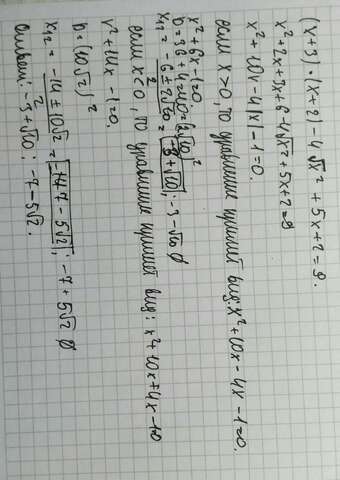 (x+3)·(x+2)-4√x²+5x+2=8.
x²+2x+3x+6-4√x²+5x+2=8
x²+10x-4|x|-1=0.
если x>0, то уравнение примет вид: x²+10x-4x-1=0.
x²+6x-1=0
D=36+4=40=(2√10)²
x₁,₂= -6±2√10/2 = -3+√10; -3-√10 ∅
если x<0, то уравнение примет вид: x²+10x+4x-1=0
x²+14x-1=0.
D=(10√2)²
x₁,₂= -14±10√2/2 = -7-5√2; -7+5√2 ∅
Ответ: -3+√10; -7-5√2.